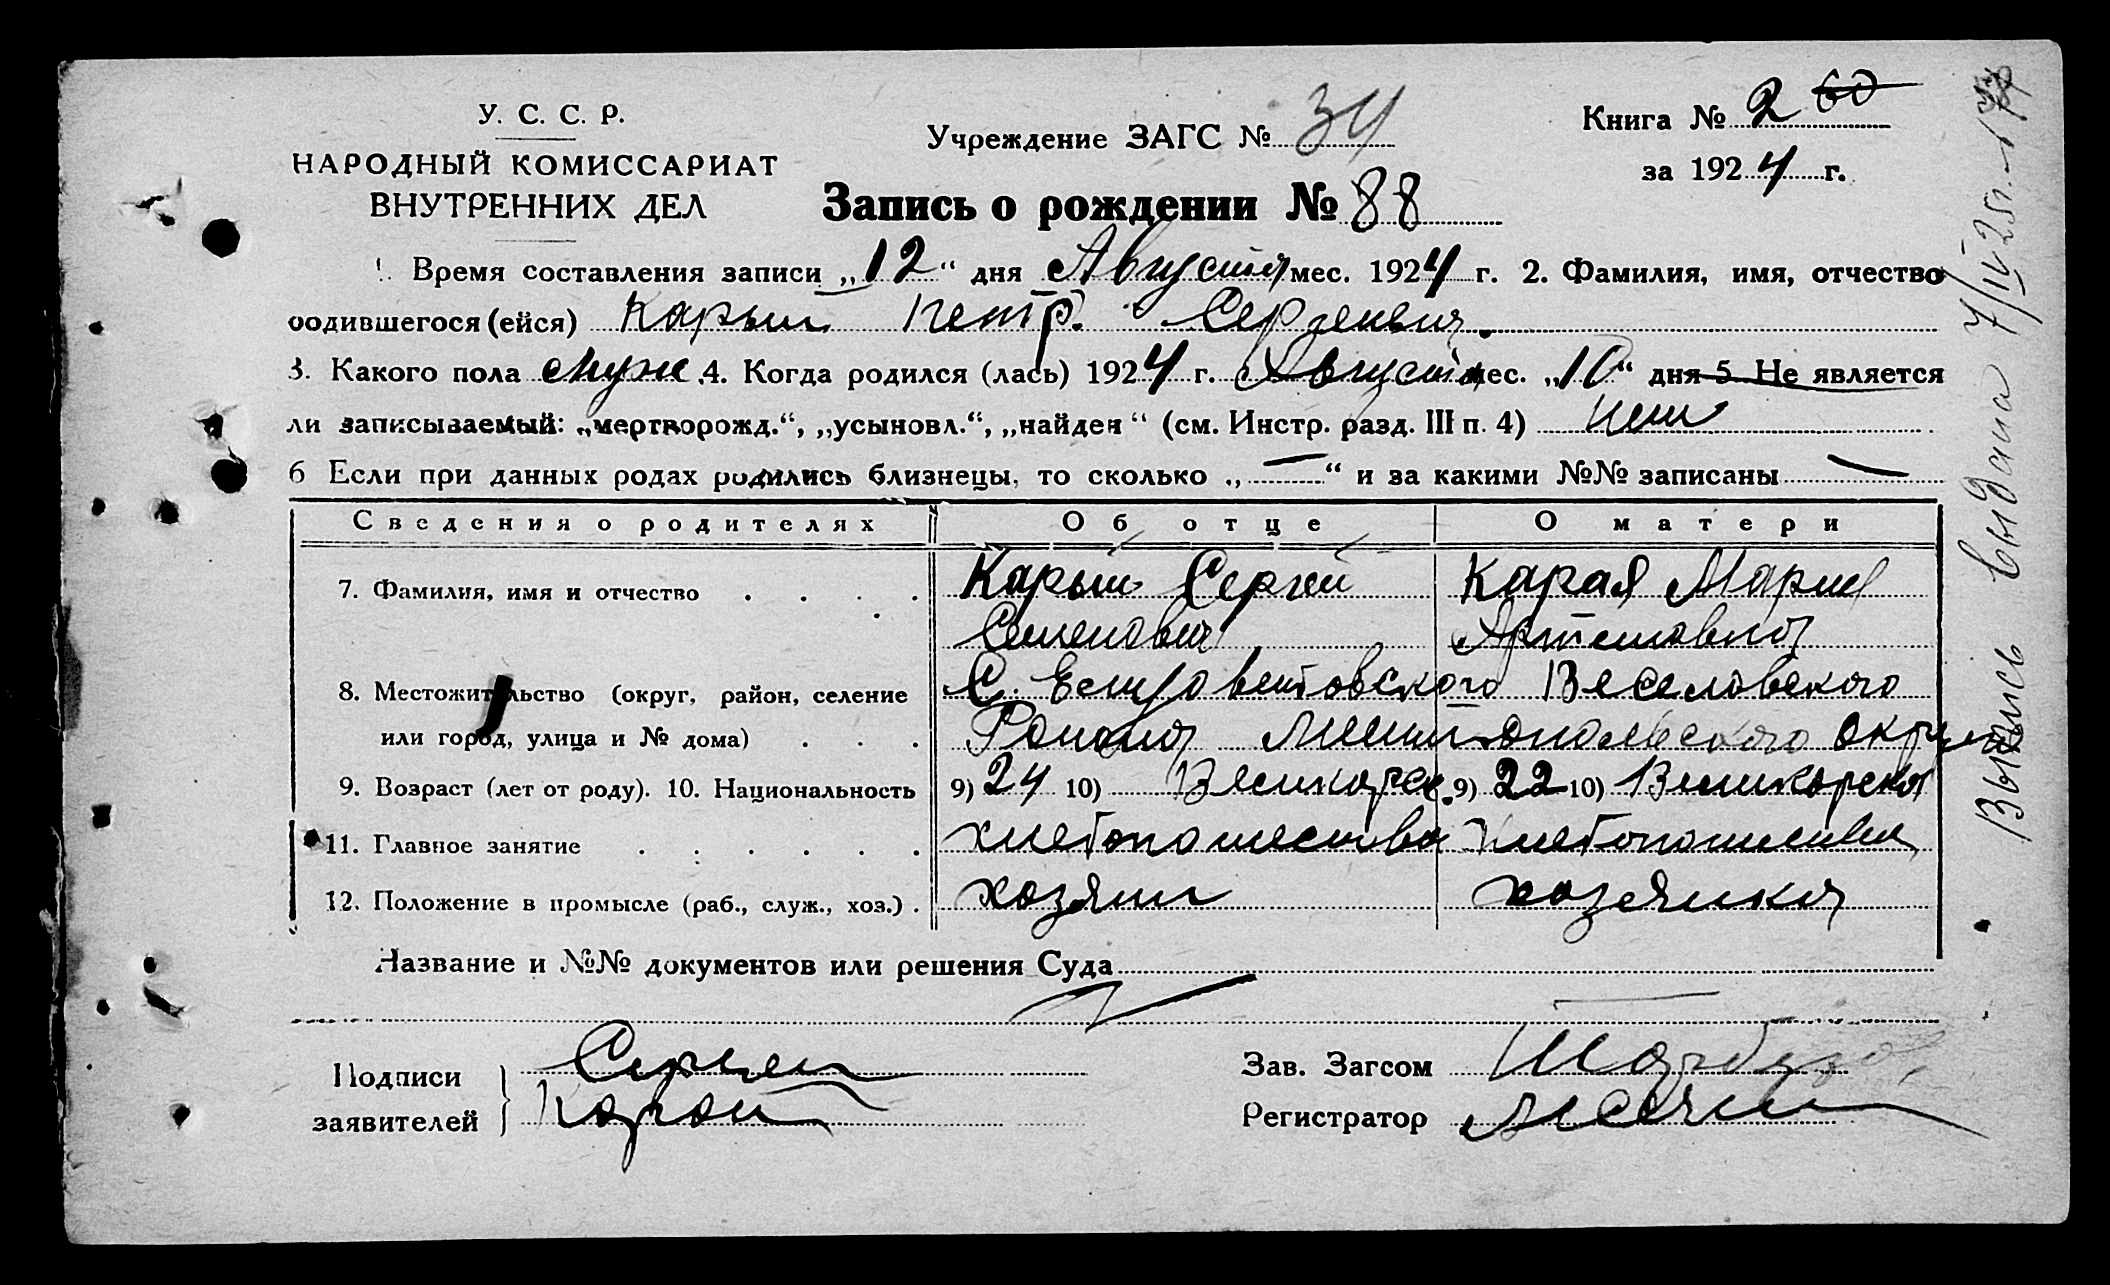 У. С. С. Р.
НАРОДНЫЙ КОМИССАРИАТ
ВНУТРЕННИХ ДЕЛ
Учреждение ЗАГС № 34
Книга № 2 60
за 1924 г.
Запись о рождении № 88
1. Время составления записи „12“ дня Августа мес. 1924 г. 2. Фамилия, имя, отчество
родившегося (ейся) Карый Петр Сергеевич.
3. Какого пола муж. 4. Когда родился (лась) 1924 г. Августа мес. „10“ дня 5. Не является
ли записываемый: „мертворожд.“, „усыновл.“, „найден“ (см. Инстр. разд. III п. 4) нет
6 Если при данных родах родились близнецы, то сколько „—“ и за какими №№ записаны —
Сведения о родителях Об отце О матери
7. Фамилия, имя и отчество . . . . Карый Сергей Карая Мария
Семенович Артемовна
8. Местожительство (округ, район, селение С. Веселовского
или город, улица и № дома) . . . Района Мелитопольского округа
9. Возраст (лет от роду). 10. Национальность 9) 24 10) Великорос. 9) 22 10) Великороска
11. Главное занятие . . . . . . хлебопашество хлебопашество
12. Положение в промысле (раб., служ., хоз.) . хозяин хозяйка
Название и №№ документов или решения Суда
Подписи
заявителей
Сергей
Карай
Зав. Загсом
Регистратор
Выпись выдана 7/IV 25г.